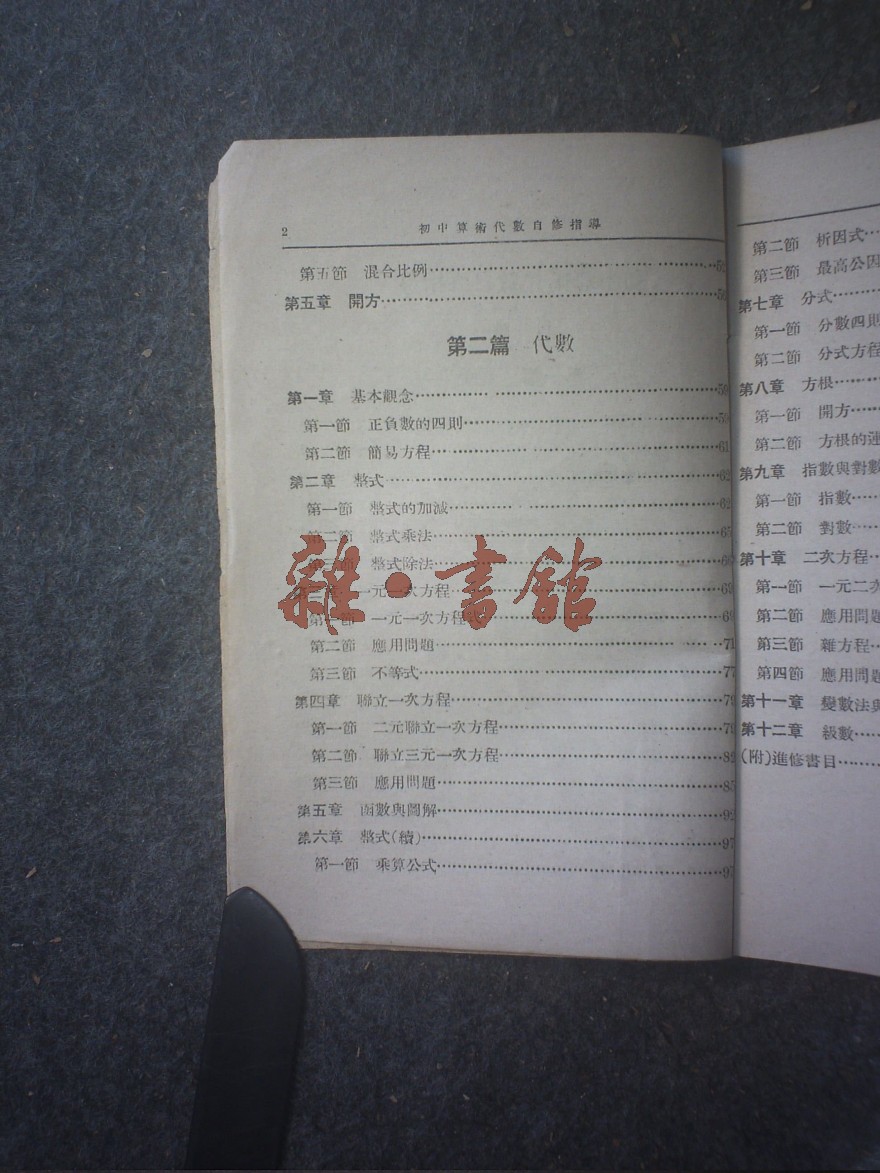 2 初中算術代數自修指導
第五節 混合比例
第五章 開方
第二篇 代數
第一章 基本觀念 59
第一節 正負數的四則 59
第二節 簡易方程 61
第二章 整式 62
第一節 整式的加減 62
第二節 整式乘法 65
第三節 整式除法
一元一次方程 69
第一節 一元一次方程 69
第二節 應用問題 71
第三節 不等式 77
第四章 聯立一次方程 79
第一節 二元聯立一次方程 79
第二節 聯立三元一次方程 82
第三節 應用問題 85
第五章 函數與圖解 92
第六章 整式(續) 97
第一節 乘算公式 97
雜·書館
第二節 析因式
第三節 最高公因
第七章 分式
第一節 分數四則
第二節 分式方程
第八章 方根
第一節 開方
第二節 方根的運
第九章 指數與對數
第一節 指數
第二節 對數
第十章 二次方程
第一節 一元二次
第二節 應用問題
第三節 雜方程
第四節 應用問題
第十一章 變數法與
第十二章 級數
(附)進修書目